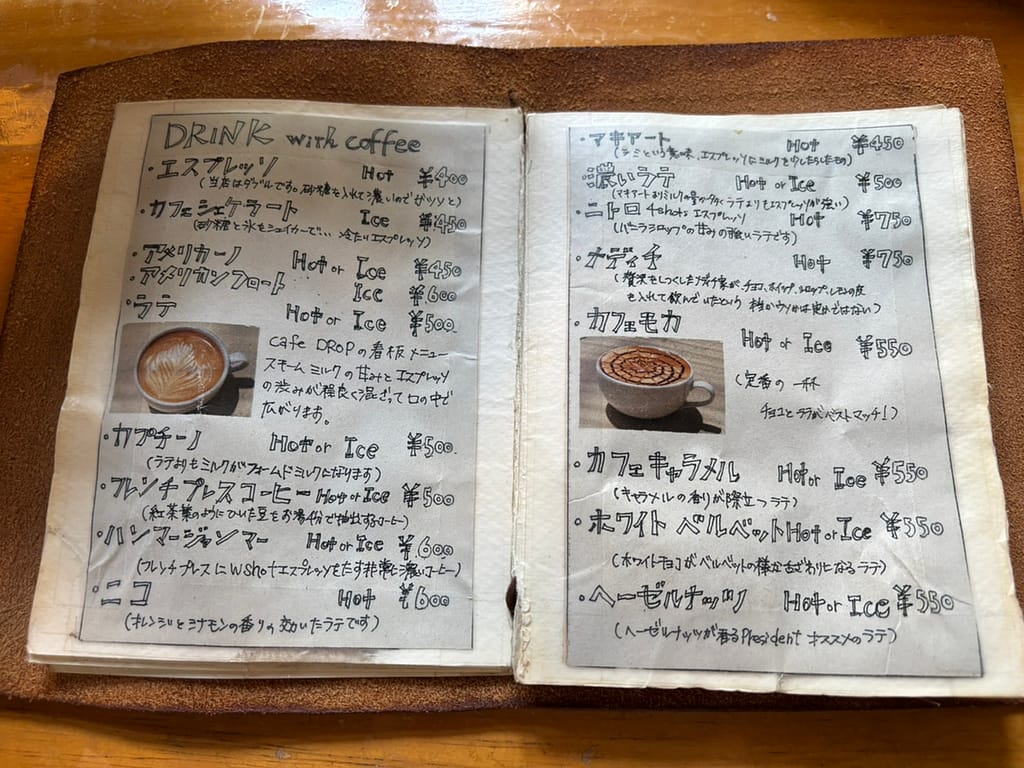 DRINK with coffee
・エスプレッソ Hot ¥400
(当店はダブルです。砂糖を入れて濃いのでガツンと)
・カフェシェケラート Ice ¥450
(砂糖と氷をシェイカーで… 冷たいエスプレッソ)
・アメリカーノ Hot or Ice ¥450
・アメリカンフロート Ice ¥600
・ラテ Hot or Ice ¥500
cafe DROPの看板メニュー
スチームミルクの甘みとエスプレッソ
の渋みが程良く混ざって口の中で
広がります。
・カプチーノ Hot or Ice ¥500
(ラテよりもミルクがフォームドミルクになります)
・フレンチプレスコーヒー Hot or Ice ¥500
(紅茶葉のようにひいた豆をお湯で抽出するコーヒー)
・ハンマージャンマー Hot or Ice ¥600
(フレンチプレスにWshotエスプレッソをたす非常に濃いコーヒー)
・ニコ Hot ¥600
(オレンジとシナモンの香りの効いたラテです)
・マキアート Hot ¥450
(シミという意味、エスプレッソにミルクを少したらしたもの)
濃いラテ Hot or Ice ¥500
(マキアートよりミルクの量が多く ラテよりもエスプレッソが強い)
・ニトロ 4shot エスプレッソ Hot ¥750
(バニラシロップの甘みの強いラテです)
・メディチ Hot ¥750
(贅沢をしつくしたメディチ家が、チョコ、ホイップ、シロップ、レモンの皮
を入れて飲んでいたという 本当かウソかは定かではない)
・カフェモカ Hot or Ice ¥550
(定番の一杯
チョコとラテがベストマッチ!)
・カフェキャラメル Hot or Ice ¥550
(キャラメルの香りが際立つラテ)
・ホワイトベルベット Hot or Ice ¥550
(ホワイトチョコがベルベットの様な舌ざわりになるラテ)
・ヘーゼルナッツ Hot or Ice ¥550
(ヘーゼルナッツが香るPresident オススメのラテ)